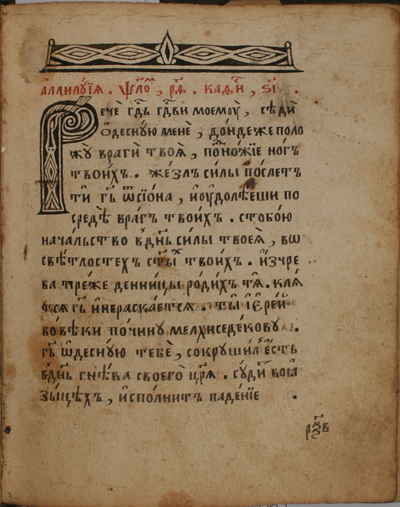 аллилꙋ́їа . ѱало́м , р҃ѳ . каѳи́ , ѕ҃і .
Речѐ гдⷭ҇ь гдⷭ҇ви моемоу̀ , сѣдѝ
ѡ҆деснꙋ́ю менѐ , до́ндеже поло
жꙋ̀ врагѝ твоѧ̀ , подно́жїе ногъ
твои́хъ . же́злъ силы̀ по́слетъ
ти гдⷭ҇ь ѿ сїо́на , и҆ оудолѣ́еши по
средѣ̀ врагъ твои́хъ . стобо́ю
нача́льство вдн҃ь си́лы твоеѧ̀ , во
свѣ́тлостехъ ст҃ы́хъ твои́хъ . и҆зчре
ва пре́же денни́цы роди́хъ тѧ̀ . клѧ
тсѧ гдⷭ҇ь и҆ нераска́етсѧ . ты̀ і҆ере́й
вовѣ́ки почи́нꙋ мелхиседе́ковꙋ .
гдⷭ҇ь ѡ҆деснꙋ́ю тебѐ , сокрꙋши́лъ є҆сть
вдн҃ь гнѣ́ва своего̀ цр҃ѧ̀ . сꙋ́дит воꙗ҆
зы́цѣхъ , и҆спо́лнит паде́нїе .